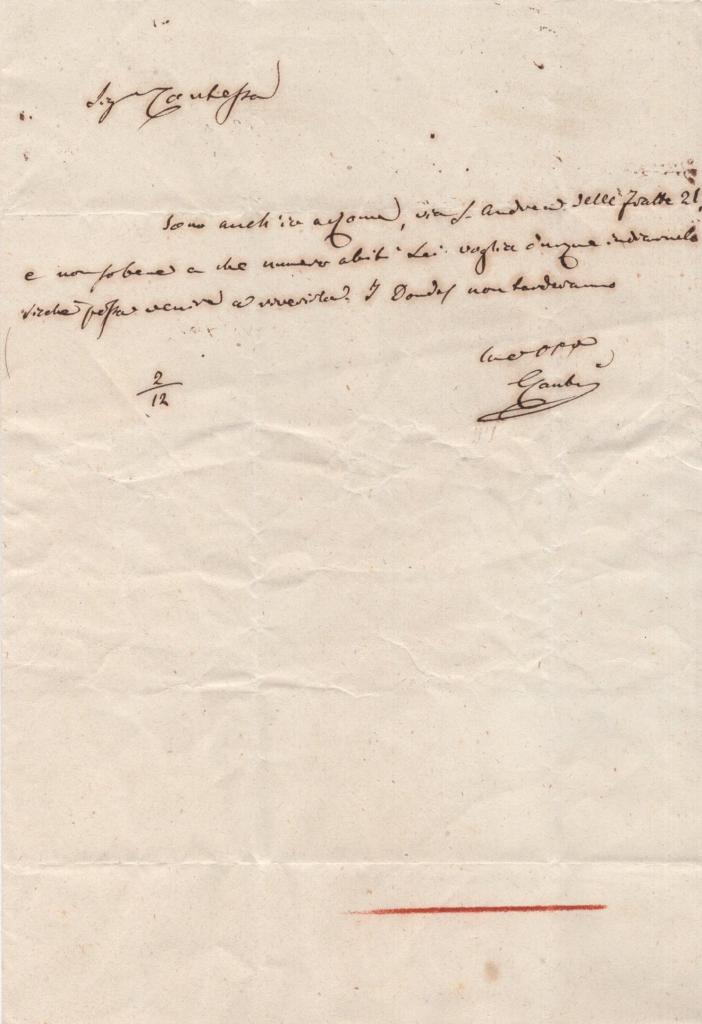 Sigra Contessa
Sono anch'io a Roma, via S. Andrea delle Fratte 21,
e non so bene a che numero abiti Lei: voglia dunque indicarmelo
sicchè possa venire a riverirla. I non tarderanno
2/12